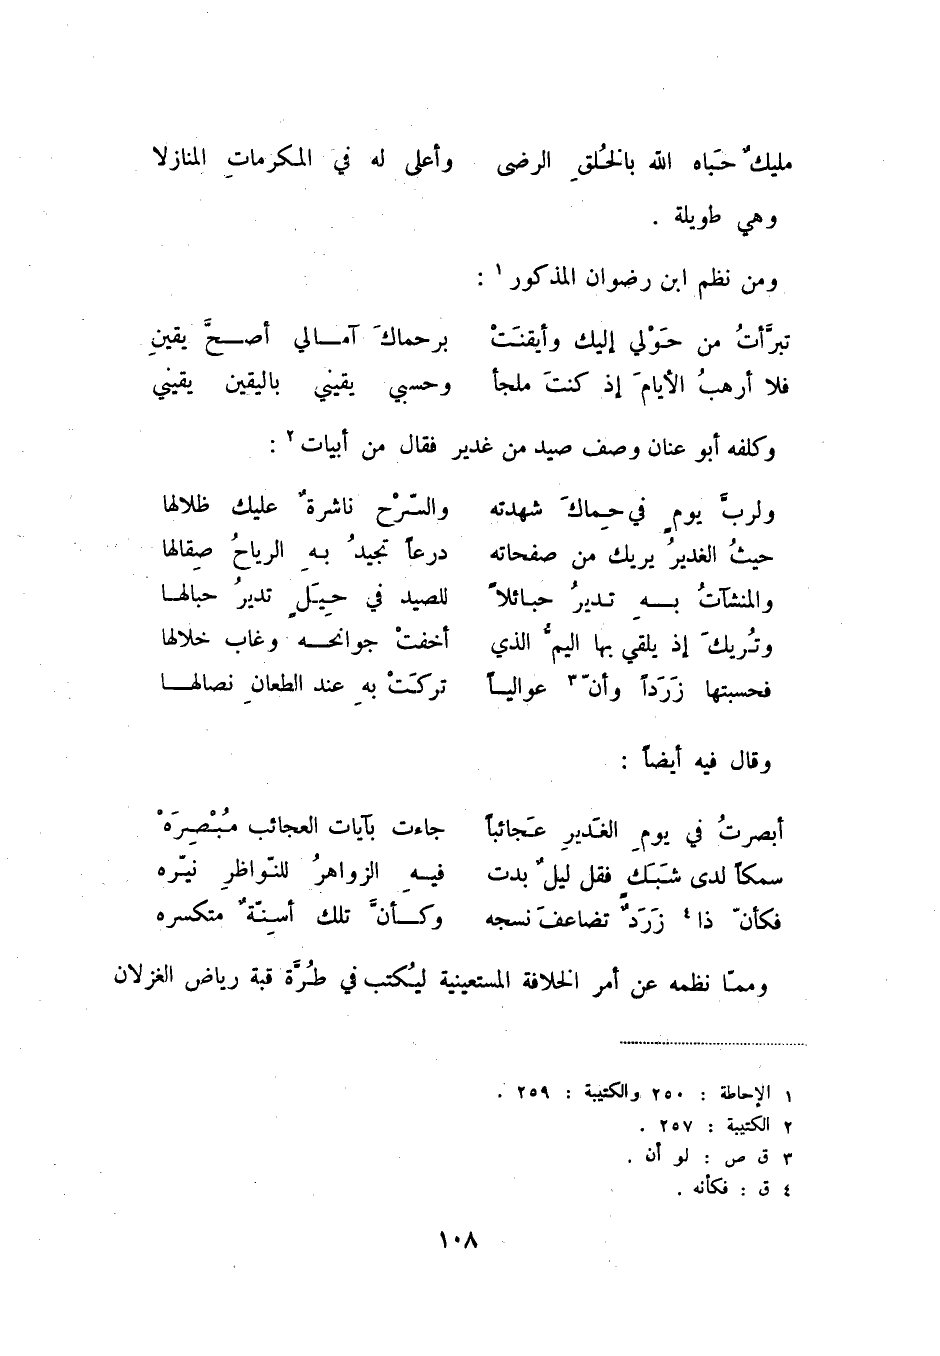 مليكٌ حَباه الله بالخُلقِ الرضى وأعلى له في المكرماتِ المنازلا
وهي طويلة .
ومن نظم ابن رضوان المذكور ١ :
تبرَّأتُ من حَوْلي إليك وأيقنَتْ برحماكَ آمالي أصحَّ يقينِ
فلا أرهبُ الأيامَ إذ كنتَ ملجأ وحسبي يقيني باليقين يقيني
وكلفه أبو عنان وصف صيد من غدير فقال من أبيات ٢ :
ولربَّ يومٍ في حِماكَ شهدته والسّرْح ناشرةٌ عليك ظلالها
حيثُ الغديرُ يريك من صفحاته درعاً تجيدُ بهِ الرياحُ صِقالها
والمنشآتُ بهِ تديرُ حبائلاً للصيد في حِيَلٍ تديرُ حبالها
وتُريكَ إذ يلقي بها اليمُّ الذي أخفتْ جوانحه وغاب خلالها
فحسبتها زَرَداً وأنّ ٣ عوالياً تركَتْ بهِ عند الطعانِ نصالها
وقال فيه أيضاً :
أبصرتُ في يومِ الغَديرِ عَجائباً جاءت بآيات العجائب مُبْصِرَهْ
سمكاً لدى شبَكٍ فقل ليلٌ بدت فيهِ الزواهرُ للنّواظرِ نيّره
فكأنّ ذا ٤ زَرَدٌ تضاعفَ نسجه وكأنَّ تلك أسِنّةٌ متكسره
وممّا نظمه عن أمر الخلافة المستعينية ليُكتب في طُرَّة قبة رياض الغزلان
١ الإحاطة : ٢٥٠ والكتيبة : ٢٥٩ .
٢ الكتيبة : ٢٥٧ .
٣ ق ص : لو أن .
٤ ق : فكأنه .
١٠٨